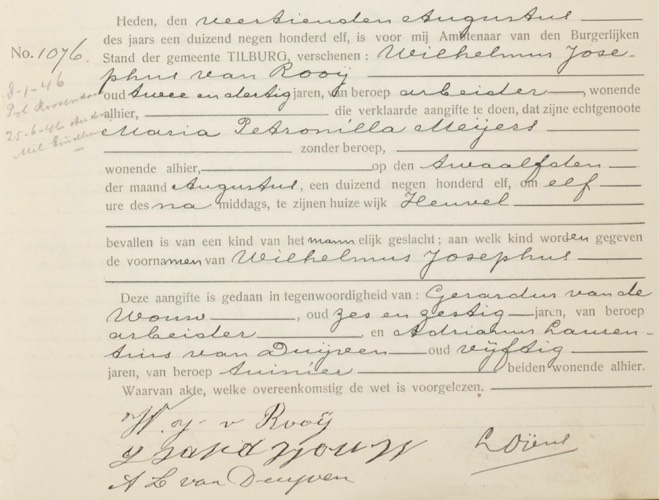 Heden, den veertienden Augustus
des jaars een duizend negen honderd elf, is voor mij Ambtenaar van den Burgerlijken
No. 1076. Stand der gemeente TILBURG, verschenen: Wilhelmus Jose-
phus van Rooij
8-1-46
oud twee en dertig jaren, van beroep arbeider, wonende
alhier, die verklaarde aangifte te doen, dat zijne echtgenoote
25-6-46
Maria Petronilla Meijers
zonder beroep,
wonende alhier, op den twaalfden
der maand Augustus, een duizend negen honderd elf, om elf
ure des na middags, te zijnen huize wijk Heuvel
bevallen is van een kind van het mannelijk geslacht; aan welk kind worden gegeven
de voornamen van Wilhelmus Josephus
Deze aangifte is gedaan in tegenwoordigheid van: Gerardus van de
Wouw, oud zes en zestig jaren, van beroep
arbeider, en Adrianus Lauren-
tius van Duijven oud vijftig
jaren, van beroep tuinier beiden wonende alhier.
Waarvan akte, welke overeenkomstig de wet is voorgelezen.
W. J. v Rooij
A L van Duijven